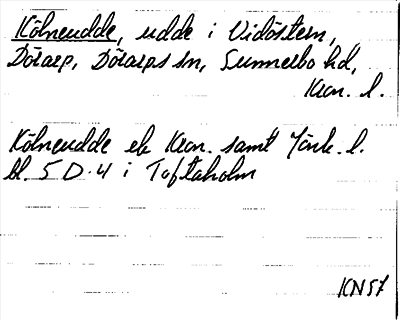 Kölneudde, udde i Vidöstern,
Dörarp, Dörarps sn, Sunnerbo hd,
Kron. l.
Kölneudde ek Kron. samt Jönk. l.
bl. 5 D.4 i Toftaholm
KN57